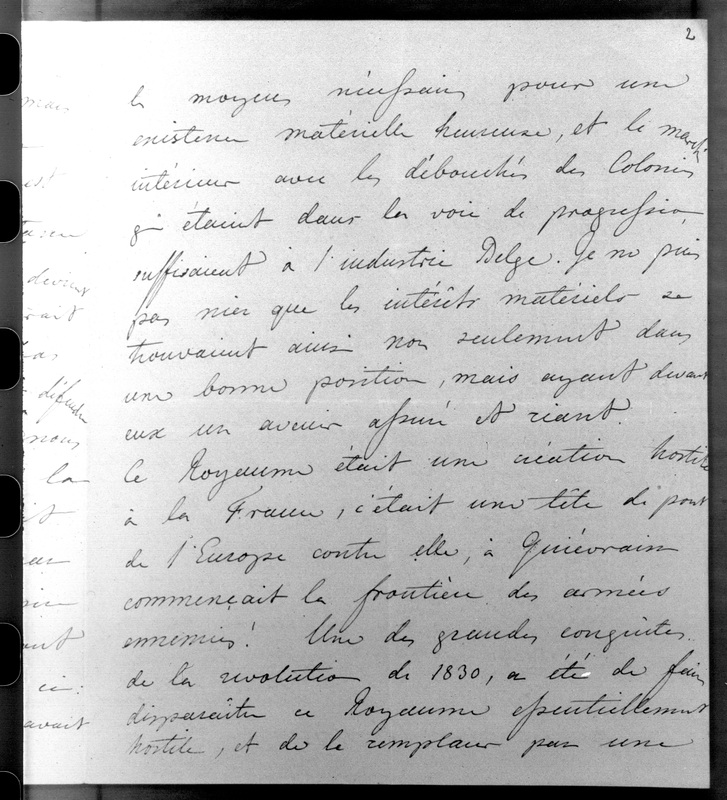 2
les moyens nécessaires pour une
existence matérielle heureuse, et le marché
intérieur avec les débouchés des Colonies
qui étaient dans la voie de progression,
suffisaient à l'industrie Belge. Je ne puis
pas nier que les intérêts matériels se
trouvaient ainsi non seulement dans
une bonne position, mais ayant devant
eux un avenir assuré et riant.
Ce Royaume était une création hostile
à la France, c'était une tête de pont
de l'Europe contre elle, à Quiévrain
commençait la frontière des armées
ennemies! Une des grandes conquêtes
de la revolution de 1830, a été de faire
disparaître ce Royaume essentiellement
hostile, et de le remplacer par une
mais
devins
défendre
nous
la
avait